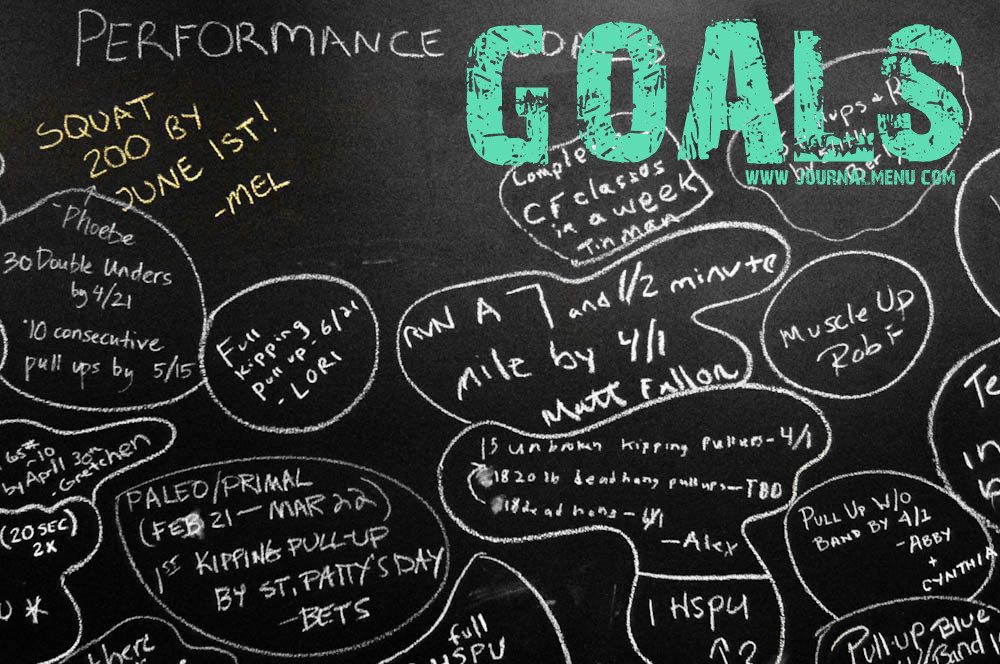 PERFORMANCE
GOALS
WWW.JOURNALMENU.COM
SQUAT
200 BY
JUNE 1ST!
-MEL
-Phoebe
30 Double Unders
by 4/21
·10 consecutive
pull ups by 5/15
Full
Kipping
Pull up - 6/21
- LORI
CF classes
in a week
Tin man
RUN A 7 and 1/2 minute
mile by 4/1
Matt Fallon
Muscle Up
Rob F
15 unbroken kipping pullups - 4/1
18 20 lb deadhang pullups - TBD
18 dead hans - 4/1
- Alex
by April 30th
- Gretchen
(20 SEC)
2X
PALEO/PRIMAL
(FEB 21 - MAR 22)
1ST KIPPING PULL-UP
BY ST. PATTY'S DAY
- BETS
PULL UP W/O
BAND BY 4/1
- ABBY
+
CYNTHIA
full
HSPU
1 HSPU
Pull-up Blue
Band